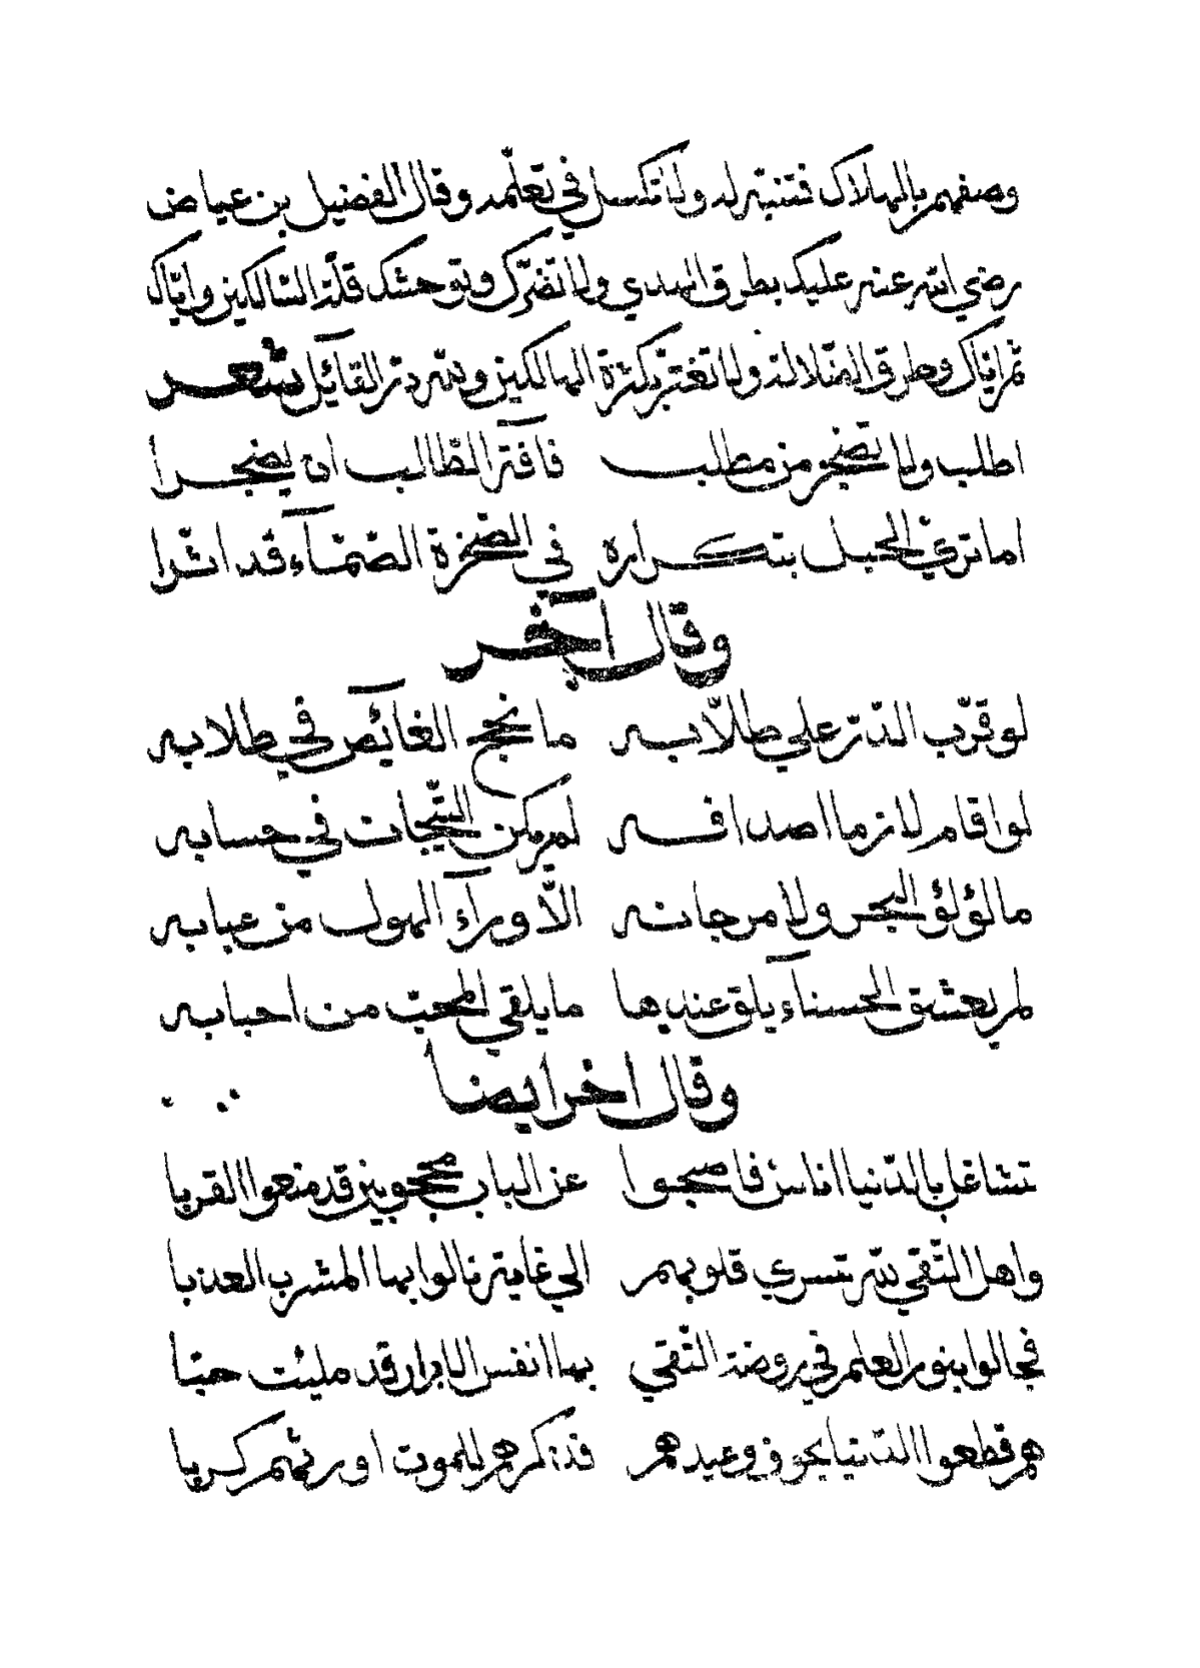 وصفهم بالهلاك فتنبّه له ولا تكسل في تعلّمه وقال الفضيل بن عياض
رضي الله عنه عليك بطرق الهدي ولا تضرّك وتوحشك قلّة السّالكين وايّاك
ثم ايّاك وطرق الضّلالة ولا تغترّ بكثرة الهالكين ولله درّ القآئل شعر
اطلب ولا تضجر من مطلب فآفة الطّالب ان يضجرا
اما تري الحبل بتكراره في الصّخرة الصّمّآء قد اثّرا
وقال آخر
لو قرّب الدّرّ علي طلّابه ما نجح الغآئص في طلابه
لو اقام لازما اصدافه لم يكن التّيجان في حسابه
ما لؤلؤ البحر ولا مرجانه الّا ورآء الهول من عبابه
لم يعشق الحسنآء يلق عندها ما يلقي المحبّ من احبابه
وقال اخر ايضا
تشاغل بالدّنيا اناس فاصبحوا عن الباب محجوبين قد منعوا القربا
واهل التّقي لله تسري قلوبهم الي غاية نالوا بها المشرب العذبا
فجالوا بنور العلم في روضة التّقي بها انفس الابرار قد مليت حبّا
هم قطعوا الدّنيا بخوف وعيدهم فذكرهم للموت اورثهم كربا